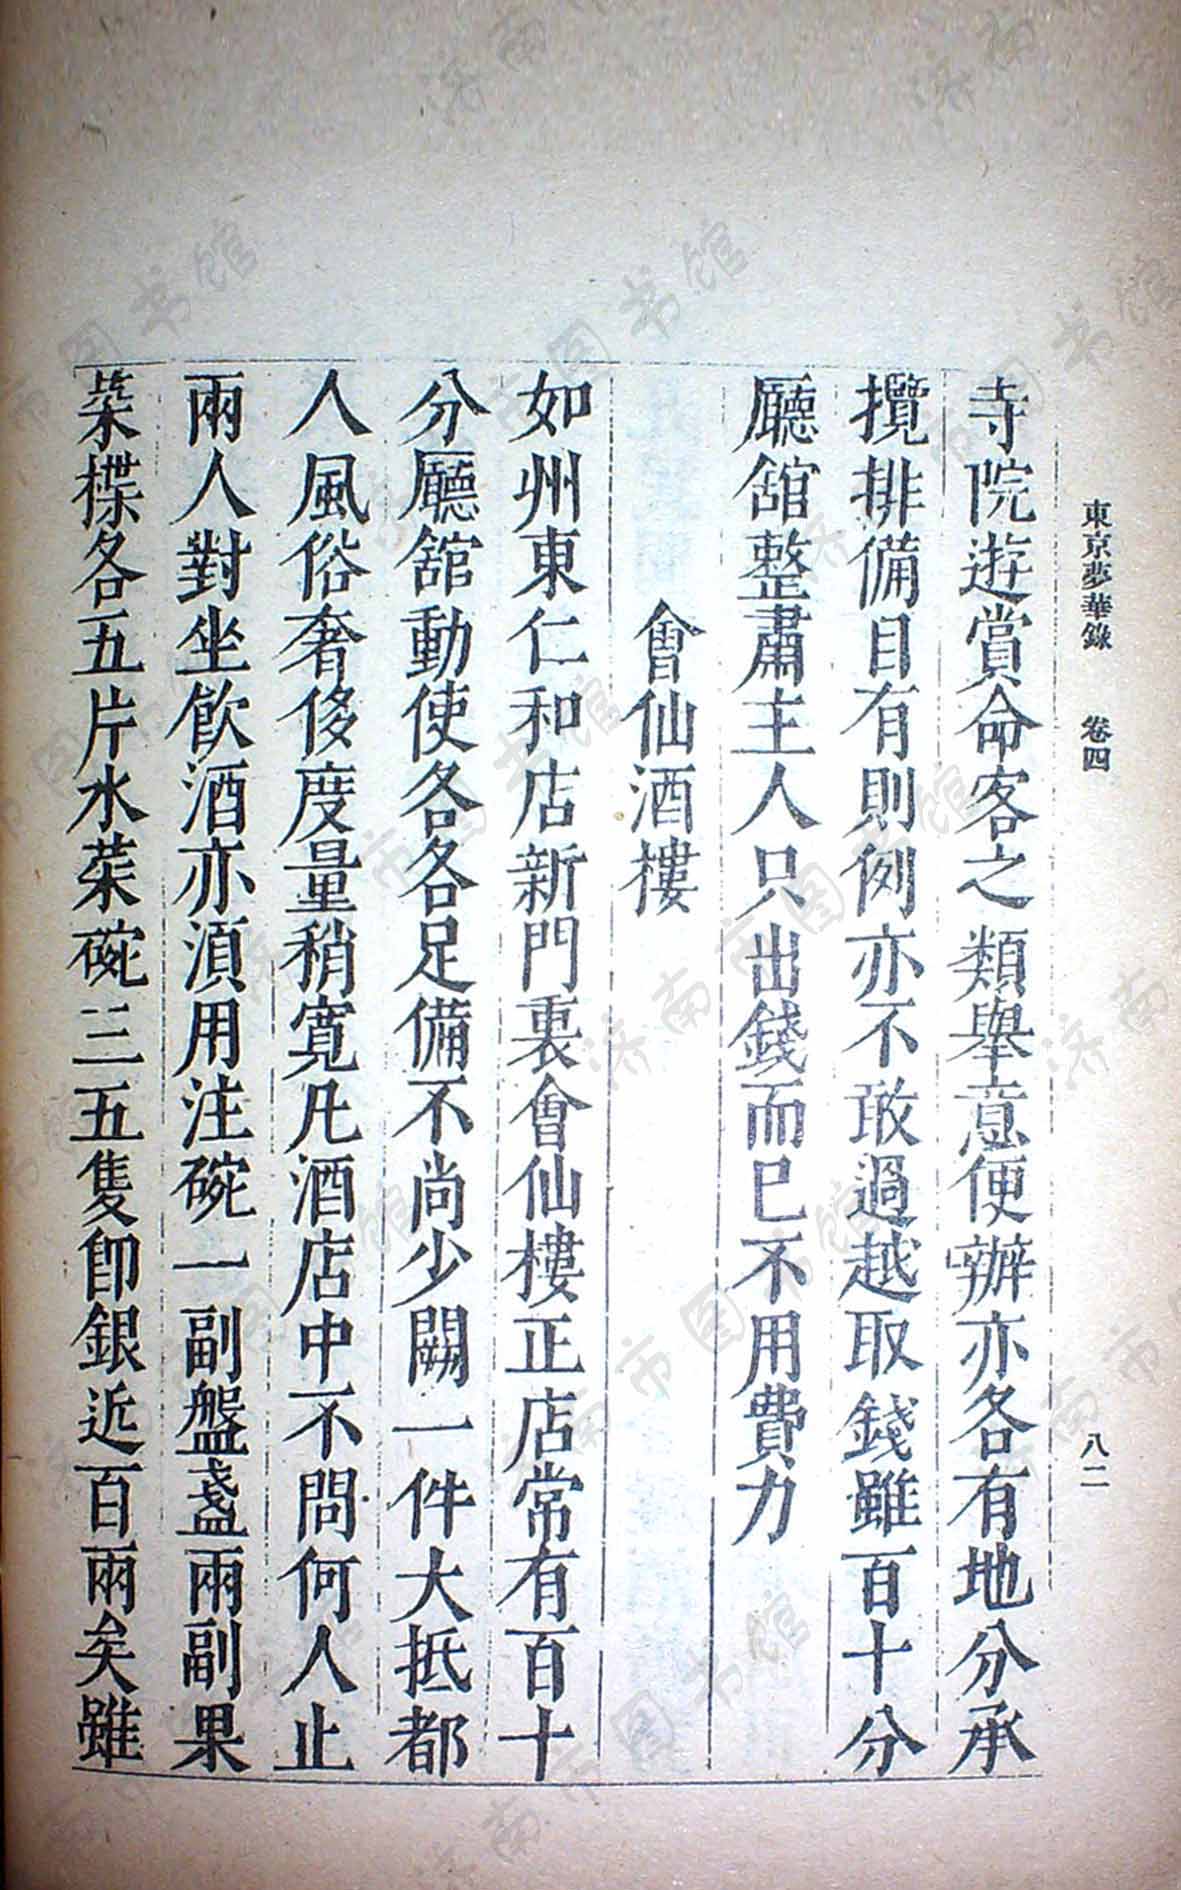 東京夢華錄 卷四 八二
寺院遊賞命客之類舉意便辦亦各有地分承
攬排備目有則例亦不敢過越取錢雖百十分
廳舘整肅主人只出錢而已不用費力
會仙酒樓
如州東仁和店新門裏會仙樓正店常有百十
分廳舘動使各各足備不尚少闕一件大抵都
人風俗奢侈度量稍寬凡酒店中不問何人止
兩人對坐飲酒亦須用注碗一副盤盞兩副果
菜楪各五片水菜碗三五隻卽銀近百兩矣雖
济南市图书馆